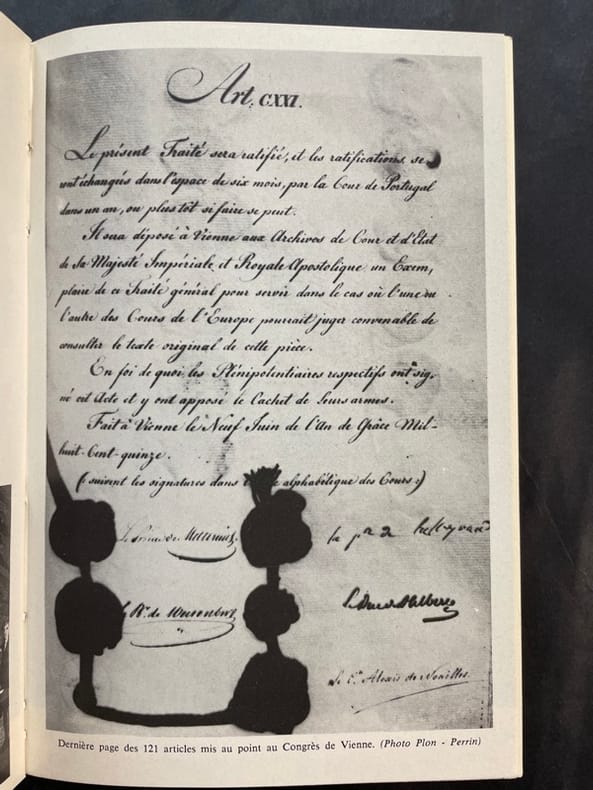 Art. CXXI.
Le présent Traité sera ratifié, et les ratifications se
ront échangées dans l'espace de six mois, par la Cour de Portugal
dans un an, ou plus tôt si faire se peut.
Il sera déposé à Vienne aux Archives de Cour et d'Etat
de Sa Majesté Impériale et Royale Apostolique un Exem,
plaire de ce Traité général pour servir dans le cas où l'une ou
l'autre des Cours de l'Europe pourrait juger convenable de
consulter le texte original de cette pièce.
En foi de quoi les Plénipotentiaires respectifs ont sig,
né cet Acte et y ont apposé le Cachet de leurs armes.
Fait à Vienne le Neuf Juin de l'An de Grâce Mil-
huit-Cent-quinze.
(: suivent les signatures dans alphabétique des Cours :)
Le Prince de Metternich le Pce de Talleyrand
le Bn. de Wessenberg le Duc de Dalberg
Le Cte Alexis de Noailles
Dernière page des 121 articles mis au point au Congrès de Vienne. (Photo Plon - Perrin)